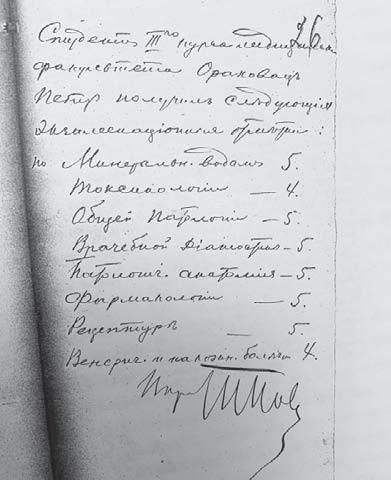 36
Студентъ IIIго курса медицинск.
факультета Ораховацъ
Петръ получилъ слѣдующія
экзаменаціонныя отмѣтки:
по Минеральн. водамъ 5.
Токсикологіи — 4.
Общей Патологіи — 5.
Врачебной Діагностики — 5.
Патологич. анатомія — 5.
Фармакологіи — 5.
Рецептурѣ — 5.
Венерич. и накожн. болѣзн. 4.